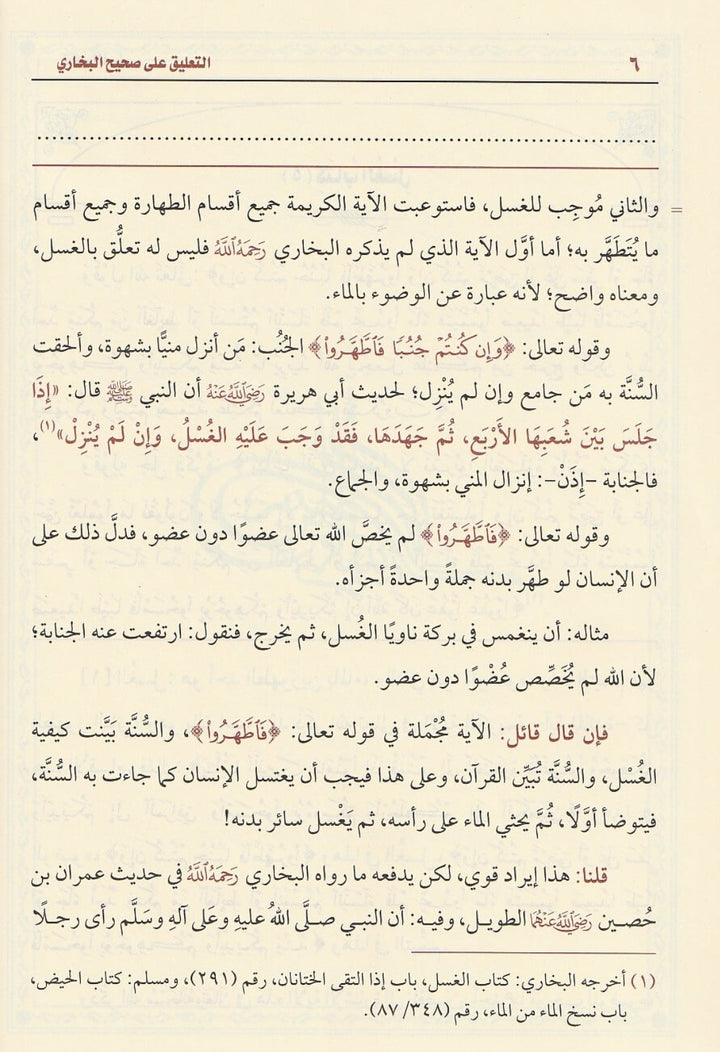 ٦ التعليق على صحيح البخاري
................................................................................
= والثاني مُوجِب للغسل، فاستوعبت الآية الكريمة جميع أقسام الطهارة وجميع أقسام
ما يُتَطَهَّر به؛ أما أوَّل الآية الذي لم يذكره البخاري رَحِمَهُ ٱللَّهُ فليس له تعلُّق بالغسل،
ومعناه واضح؛ لأنه عبارة عن الوضوء بالماء.
وقوله تعالى: ﴿وَإِن كُنتُمْ جُنُبًا فَٱطَّهَّرُوا۟﴾ الجُنُب: مَن أنزل منيًّا بشهوة، وألحقت
السُّنَّة به مَن جامع وإن لم يُنْزِل؛ لحديث أبي هريرة رَضِيَ ٱللَّهُ عَنْهُ أن النبي ﷺ قال: «إِذَا
جَلَسَ بَيْنَ شُعَبِهَا الأَرْبَعِ، ثُمَّ جَهَدَهَا، فَقَدْ وَجَبَ عَلَيْهِ الغُسْلُ، وَإِنْ لَمْ يُنْزِلْ»(١)،
فالجنابة -إِذَنْ-: إنزال المني بشهوة، والجماع.
وقوله تعالى: ﴿فَٱطَّهَّرُوا۟﴾ لم يخصَّ الله تعالى عضوًا دون عضو، فدلَّ ذلك على
أن الإنسان لو طهَّر بدنه جملةً واحدةً أجزأه.
مثاله: أن ينغمس في بركة ناويًا الغُسل، ثم يخرج، فنقول: ارتفعت عنه الجنابة؛
لأن الله لم يُخَصِّص عُضْوًا دون عضو.
فإن قال قائل: الآية مُجْمَلة في قوله تعالى: ﴿فَٱطَّهَّرُوا۟﴾، والسُّنَّة بَيَّنت كيفية
الغُسْل، والسُّنَّة تُبَيِّن القرآن، وعلى هذا فيجب أن يغتسل الإنسان كما جاءت به السُّنَّة،
فيتوضأ أوَّلًا، ثُمَّ يحثي الماء على رأسه، ثم يَغْسل سائر بدنه!
قلنا: هذا إيراد قوي، لكن يدفعه ما رواه البخاري رَحِمَهُ ٱللَّهُ في حديث عمران بن
حُصين رَضِيَ ٱللَّهُ عَنْهُمَا الطويل، وفيه: أن النبي صلَّى اللهُ عليهِ وعَلَى آلِهِ وسَلَّم رأى رجلًا
(١) أخرجه البخاري: كتاب الغسل، باب إذا التقى الختانان، رقم (٢٩١)، ومسلم: كتاب الحيض،
باب نسخ الماء من الماء، رقم (٣٤٨/ ٨٧).